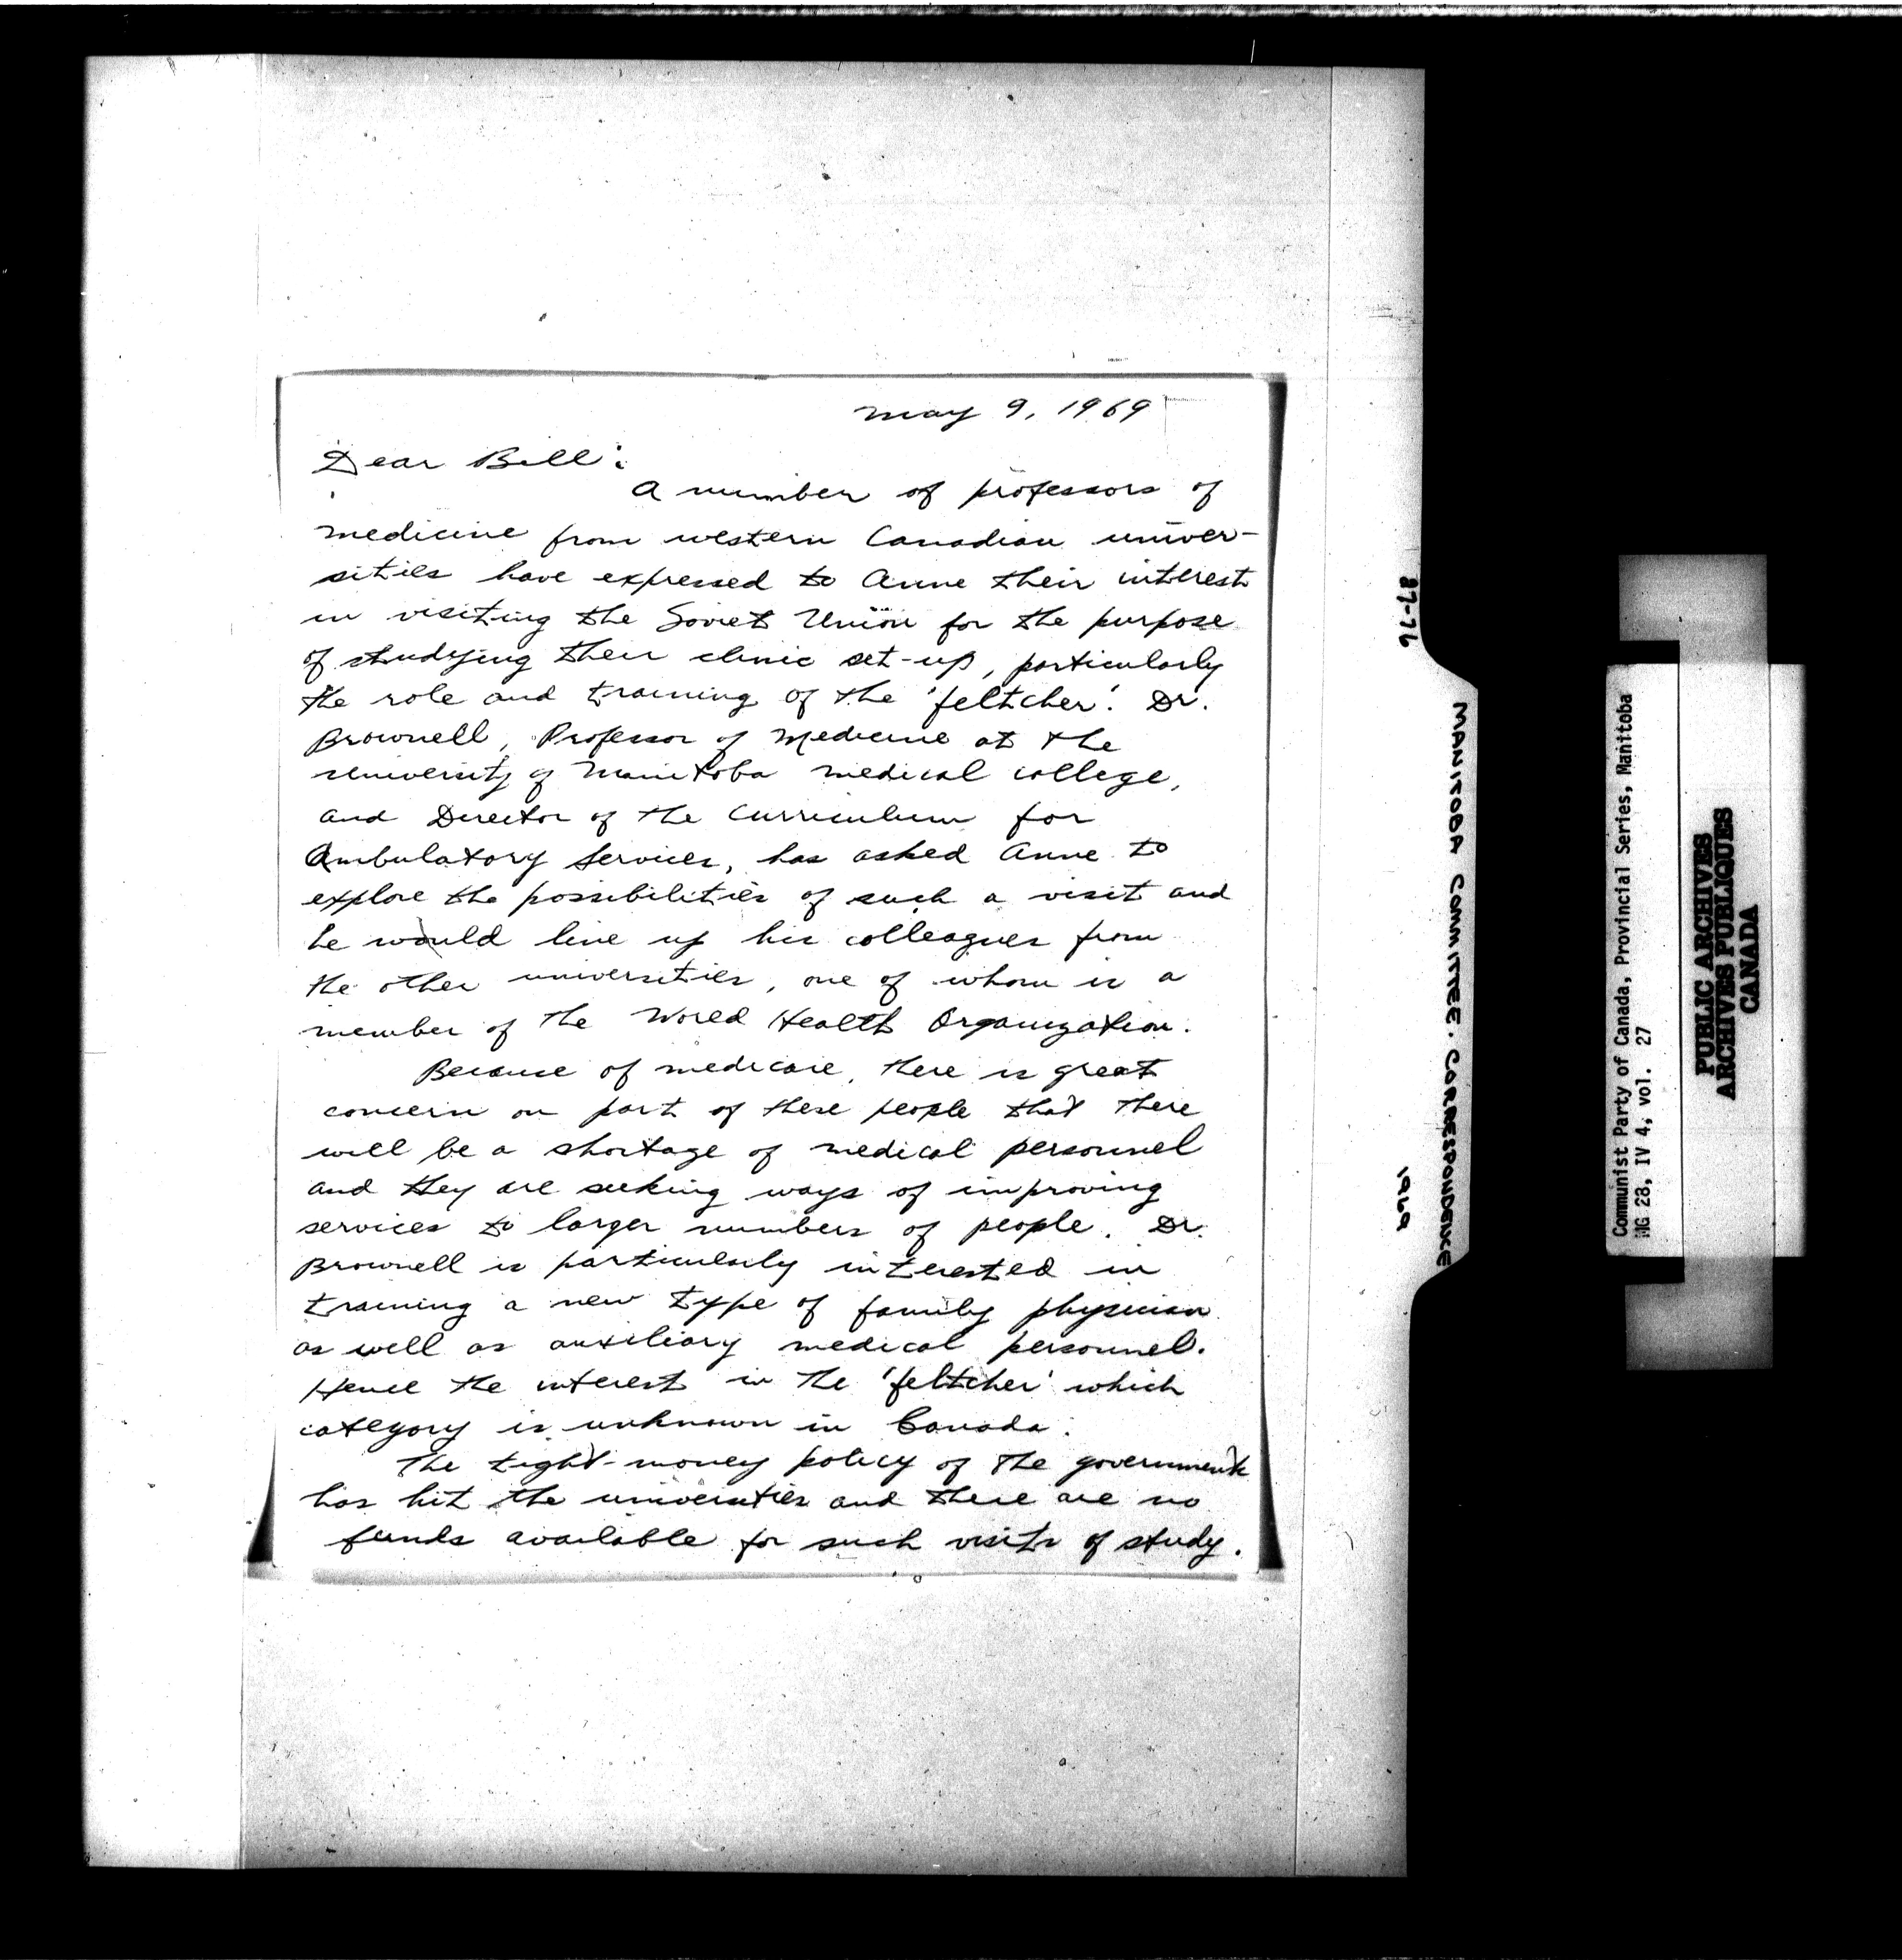 May 9, 1969
Dear Bill:
A number of professors of
medicine from western Canadian univer-
sities have expressed to Anne their interest
in visiting the Soviet Union for the purpose
of studying their clinic set-up, particularly
the role and training of the 'feltcher'. Dr.
Brownell, Professor of Medicine at the
University of Manitoba medical college,
and Director of the Curriculum for
Ambulatory Services, has asked Anne to
explore the possibilities of such a visit and
he would line up his colleagues from
the other universities, one of whom is a
member of the World Health Organization.
Because of medicare, there is great
concern on part of these people that there
will be a shortage of medical personnel
and they are seeking ways of improving
services to larger numbers of people. Dr.
Brownell is particularly interested in
training a new type of family physician
as well as auxiliary medical personnel.
Hence the interest in the 'feltcher' which
category is unknown in Canada.
The tight-money policy of the government
has hit the universities and there are no
funds available for such visits of study.
87-76
MANITOBA COMMITTEE. CORRESPONDENCE
1969
Communist Party of Canada, Provincial Series, Manitoba
MG 28, IV 4, vol. 27
PUBLIC ARCHIVES
ARCHIVES PUBLIQUES
CANADA